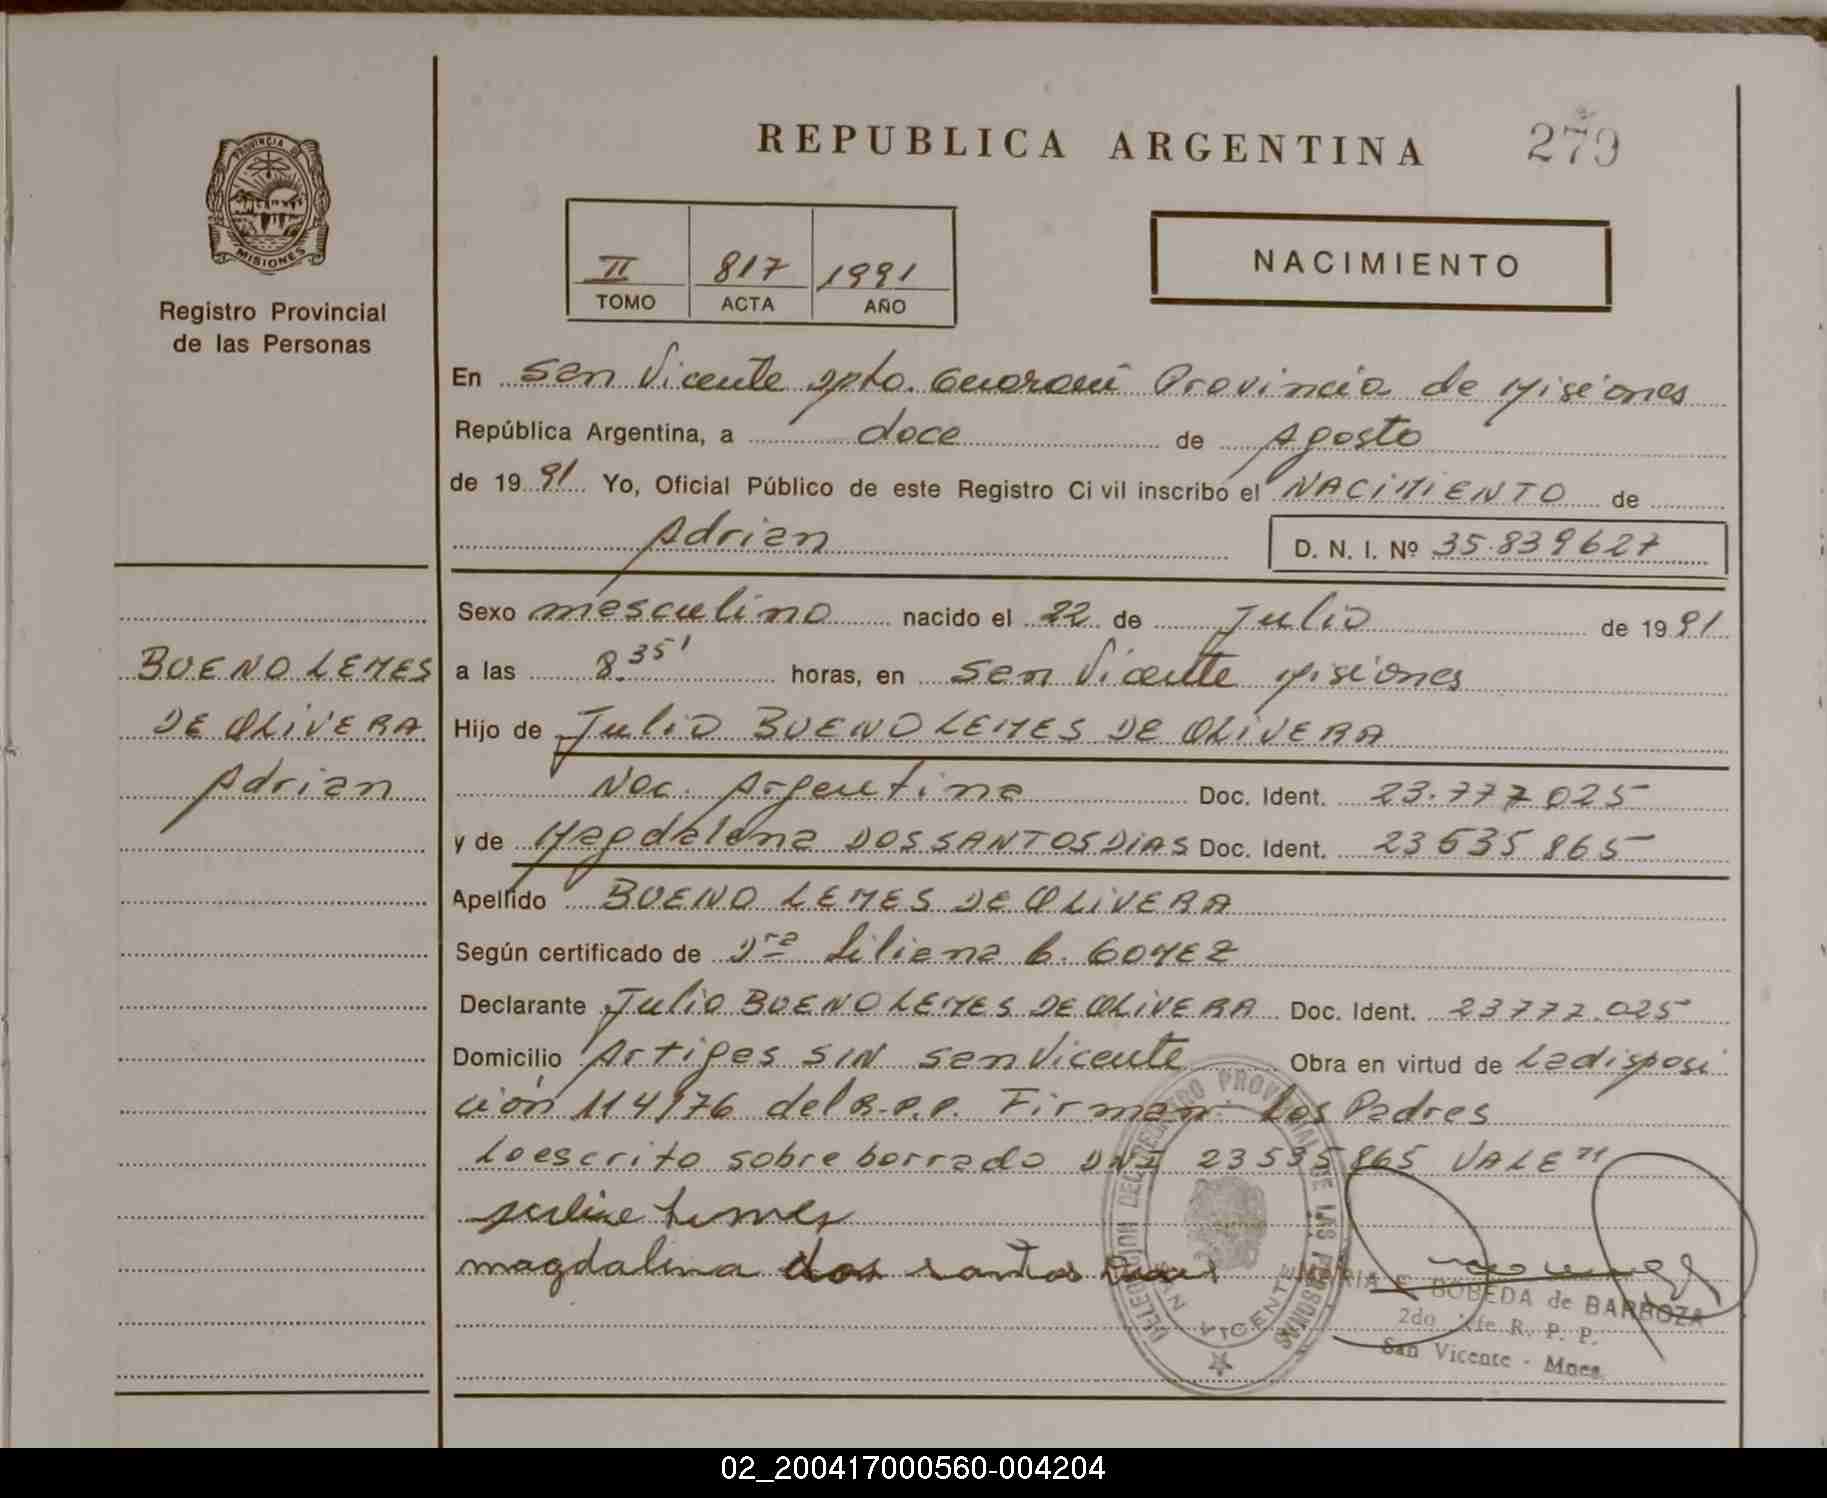 REPUBLICA ARGENTINA
279
PROVINCIA DE
MISIONES
Registro Provincial
de las Personas
II 817 1991
TOMO ACTA AÑO
NACIMIENTO
En San Vicente Dpto. Guarani Provincia de Misiones
República Argentina, a doce de Agosto
de 1991 Yo, Oficial Público de este Registro Civil inscribo el NACIMIENTO de
Adrian
D. N. I. Nº 35.839627
BUENO LEMES
DE OLIVERA
Adrian
Sexo masculino nacido el 22 de Julio de 1991
a las 8.35' horas, en San Vicente Misiones
Hijo de Julio BUENO LEMES DE OLIVERA
Nac. Argentina Doc. Ident. 23.777025
y de Magdalena DOS SANTOS DIAS Doc. Ident. 23635865
Apellido BUENO LEMES DE OLIVERA
Según certificado de Dra Liliana B. GOMEZ
Declarante Julio BUENO LEMES DE OLIVERA Doc. Ident. 23777.025
Domicilio Artigas S/N San Vicente Obra en virtud de La disposi
ción 114/76 del R.P.P. Firman Los Padres
Lo escrito sobre borrado DNI 23535865 VALE"
Lemes
magdalena dos santos Dias
DELEGACION DEL REGISTRO PROVINCIAL DE LAS PERSONAS
VICENTE
MARIA E BOBEDA de BARBOZA
2do. Jfe R. P. P.
San Vicente - Mnes.
02_200417000560-004204